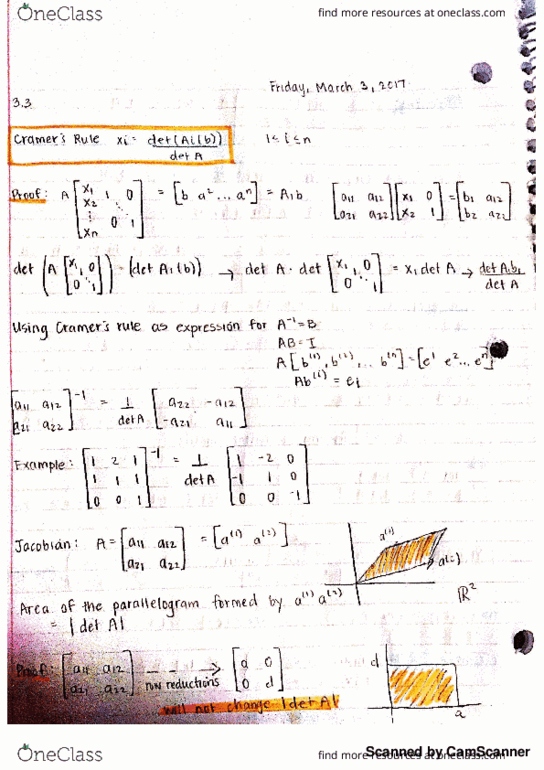 OneClass find more resources at oneclass.com
Friday, March 3, 2017
3.3
Cramer's Rule xi = det(Ai(b)) / det A 1 ≤ i ≤ n
Proof: A [x1 1 0; x2; ⋮ 0 1; xn] = [b a² ... aⁿ] = A1b [a11 a12; a21 a22] [x1 0; x2 1] = [b1 a12; b2 a22]
det (A [x1 0; 0 1]) = (det A1(b)) → det A · det [x1 1 0; 0 1] = x1 det A → det A1b1 / det A
Using Cramer's rule as expression for A⁻¹ = B
AB = I
A[b⁽¹⁾, b⁽²⁾, ... b⁽ⁿ⁾] = [e¹ e² ... eⁿ]
Ab⁽ⁱ⁾ = ei
[a11 a12; a21 a22]⁻¹ = 1/det A [a22 -a12; -a21 a11]
Example: [1 2 1; 1 1 1; 0 0 1]⁻¹ = 1/det A [1 -2 0; -1 1 0; 0 0 -1]
Jacobian: A = [a11 a12; a21 a22] = [a⁽¹⁾ a⁽²⁾]
a⁽¹⁾
a⁽²⁾
ℝ²
Area of the parallelogram formed by a⁽¹⁾ a⁽²⁾
= |det A|
Proof: [a11 a12; a21 a22] → row reductions [a 0; 0 d]
d
a
will not change |det A|
OneClass find more resources at oneclass.com
Scanned by CamScanner